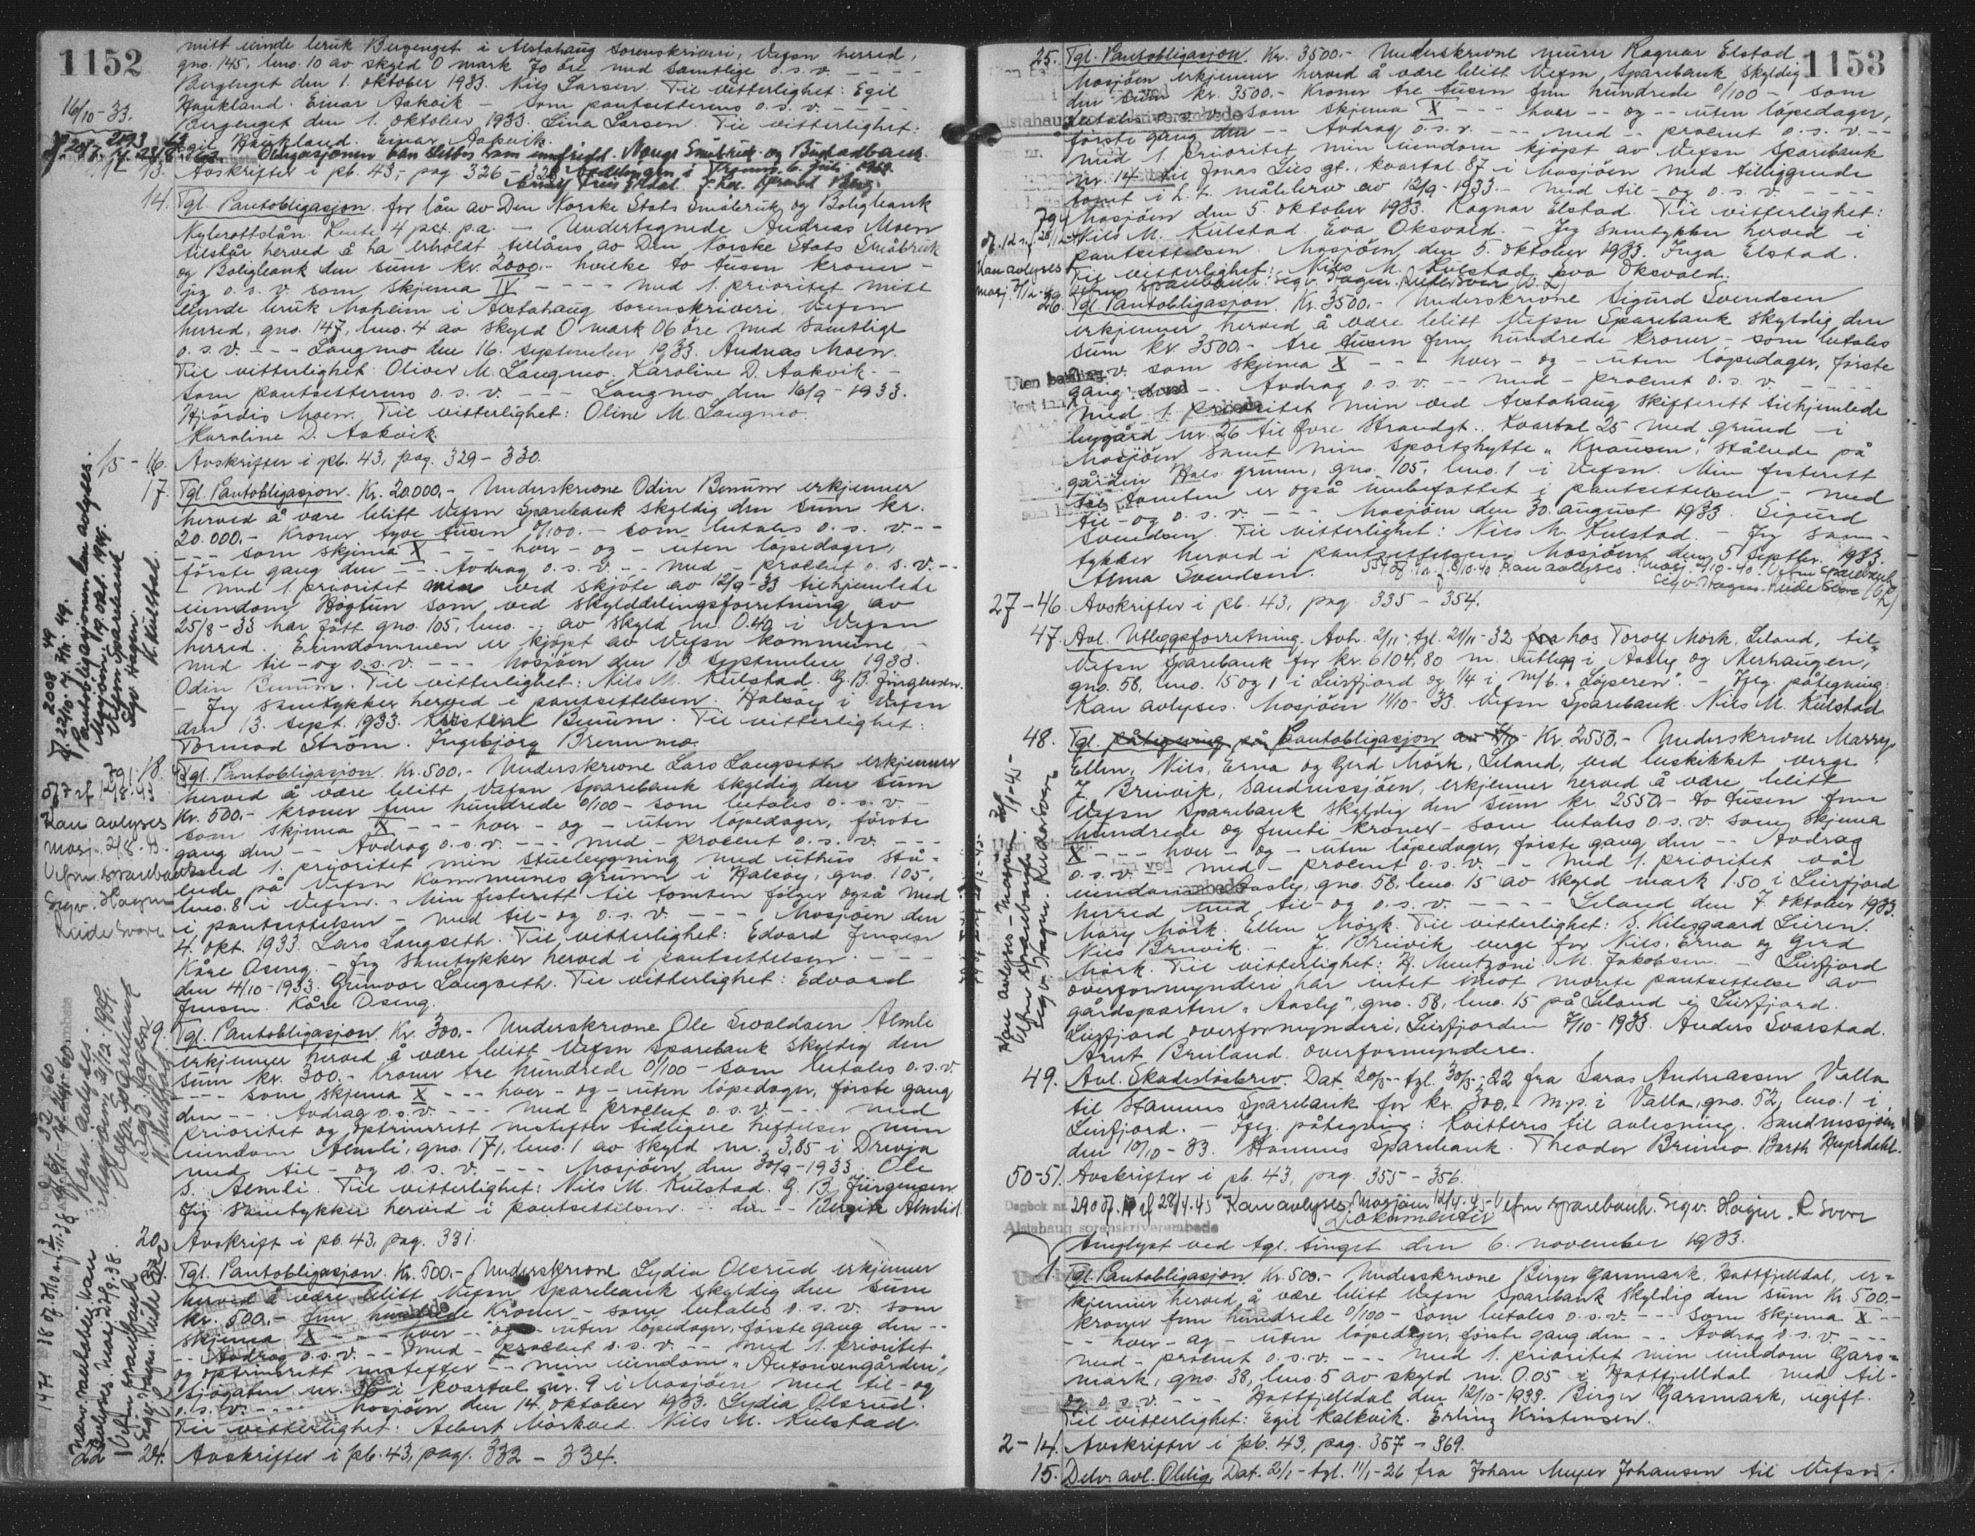 1152
mitt eiende bruk Bergenget i Alstahaug sorenskriveri, Vefsn herred,
gno. 145, bno. 10 av skyld 0 mark 70 öre med samtlige o.s.v. - - - -
Bergenget den 1. oktober 1933. Nils Larsen. Til vitterlighet: Egil
16/10-33. Haukland. Einar Aakvik - som pantsetterens o.s.v. - - - -
Bergenget den 1. oktober 1933. Lina Larsen. Til vitterlighet:
Egil Haukland. Einar Aakvik.
Obligasjonen kan slettes som innfridd. Norges Småbruk og Bustadbank
13. Avskrifter i pb. 43, pag. 326 - 328
14. Tgl. Pantobligasjon for lån av Den Norske Stats Småbruk og Boligbank
Nybrottslån. Rente 4 pct. p.a. - Undertegnede Andreas Moen
tilstår herved å ha erholdt tillåns av Den Norske Stats Småbruk
og Boligbank den sum kr. 2000.- hvilke to tusen kroner -
jeg o.s.v. som skjema IV - - - - med 1. prioritet mitt
eiende bruk Moheim i Alstahaug sorenskriveri, Vefsn
herred, gno. 147, bno. 4 av skyld 0 mark 06 öre med samtlige
o.s.v. - - - Langmo den 16. september 1933. Andreas Moen.
Til vitterlighet: Oliver M. Langmo. Karoline D. Aakvik. -
som pantsetterens o.s.v. - - - Langmo den 16/9-1933.
Hjördis Moen. Til vitterlighet: Oline M. Langmo.
Karoline D. Aakvik.
15-16. Avskrifter i pb. 43, pag. 329 - 330.
17. Tgl. Pantobligasjon. Kr. 20.000.- Underskrevne Odin Benum erkjenner
herved å være blitt Vefsn Sparebank skyldig den sum kr.
20.000.- Kroner tyve tusen 0/100 - som betales o.s.v. - -
- - - som skjema X - - - hver - og - uten löpedager,
förste gang den - - Avdrag o.s.v. - - med - procent o.s.v. - -
- med 1 prioritet min ved skjöte av 12/9-33 tilhjemlede
eiendom Högtun som ved skylddelingsforretning av
25/8-33 har fått gno. 105, bno. - av skyld m. 0.40 i Vefsn
herred. Eiendommen er kjöpt av Vefsn kommune -
med til- og o.s.v. - - - Mosjöen den 13 september 1933.
Odin Benum. Til vitterlighet: Nils M. Kulstad. G. B. Jürgensen.
- Jeg samtykker herved i pantsettelsen. Halsöy i Vefsn
den 13. sept. 1933. Benum. Til vitterlighet:
Tormod Ström. Ingebjörg Bremmo.
18. Tgl. Pantobligasjon. Kr. 500.- Underskrevne Lars Langseth erkjenner
herved å være blitt Vefsn Sparebank skyldig den sum
Kr. 500.- kroner fem hundrede 0/100 - som betales o.s.v.
som skjema X - - - hver - og - uten löpedager, förste
gang den - - Avdrag o.s.v. - - - med - procent o.s.v. - - -
- med 1. prioritet min stuebygning med uthus stå-
ende på Vefsn Kommunes grunn i Halsöy, gno. 105,
bno. 8 i Vefsn. - Min festerett til tomten fölger også med
i pantsettelsen - med til- og o.s.v. - - - Mosjöen den
4. okt. 1933. Lars Langseth. Til vitterlighet: Edvard Jensen
Kåre Oseng. - Jeg samtykker herved i pantsettelsen. - - -
den 4/10-1933. Gunvor Langseth. Til vitterlighet: Edvard
Jensen. Kåre Oseng.
19. Tgl. Pantobligasjon. Kr. 300.- Underskrevne Ole Evaldsen Almli
erkjenner herved å være blitt Vefsn Sparebank skyldig den
sum kr. 300.- Kroner tre hundrede 0/100 - som betales o.s.v
- - - - som skjema X - - - hver - og - uten löpedager, förste gang
den - - Avdrag o.s.v. - - - med - procent o.s.v. - - - med
prioritet og optrinsrett nestefter tidligere heftelser min
eiendom Almli, gno. 171, bno. 1 av skyld m. 3,85 i Drevja
med til- og o.s.v. - - - Mosjöen den 30/9-1933. Ole
E. Almli. Til vitterlighet: Nils M. Kulstad. G. B. Jürgensen
Jeg samtykker herved i pantsettelsen. - - den - - Bergitte Almli.
20. Avskrift i pb. 43, pag. 331.
Tgl. Pantobligasjon. Kr. 500.- Underskrevne Lydia Olsrud erkjenner
herved å være blitt Vefsn Sparebank skyldig den sum
kr. 500.- fem hundrede Kroner - som betales o.s.v. som
skjema X - - - hver - og - uten löpedager, förste gang den - -
- - Avdrag o.s.v. - - - med - procent o.s.v. - - med 1. prioritet
og optrinsrett nestefter - - min eiendom "Antonsengården",
Sjögaten nr. 36 i kvartal nr. 9 i Mosjöen med til- og
o.s.v. - - - - Mosjöen den 14. oktober 1933. Lydia Olsrud.
Til vitterlighet: Albert Mörkved. Nils M. Kulstad.
22 - 24. Avskrifter i pb. 43, pag. 332 - 334.
Pantobligasjonen kan avlyses.
Mosjöen, 19. okt. 1949.
Vefsn Sparebank
Sigv. Hagen
K. Kulstad
Kan avlyses
Mosj. 2/8.
Vefsn Sparebank
Sigv. Hagen
Reide Svare
1153
25. Tgl. Pantobligasjon. Kr. 3500.- Underskrevne murer Ragnar Elstad
Mosjöen, erkjenner herved å være blitt Vefsn Sparebank skyldig
den sum kr. 3500.- Kroner tre tusen fem hundrede 0/100 - som
betales o.s.v. som skjema X - - - hver - og - uten löpedager,
förste gang den - - Avdrag o.s.v. - - - med - - procent o.s.v. - -
med 1. prioritet min eiendom kjöpt av Vefsn Sparebank
nr. 14 til Jonas Lies gt., kvartal 87 i Mosjöen med tilliggende
tomt i h. t. målebrev av 12/9-1933 - med til- og o.s.v. - - - -
Mosjöen den 5. oktober 1933. Ragnar Elstad. Til vitterlighet:
Nils M. Kulstad. Eva Oksvold. - Jeg samtykker herved i
pantsettelsen. Mosjöen den 5. oktober 1933. Inga Elstad.
Til vitterlighet: Nils M. Kulstad. Eva Oksvold.
Vefsn Sparebank. Sigv. Hagen. Reider Svare
26. Tgl. Pantobligasjon. Kr. 3500.- Underskrevne Sigurd Svendsen
erkjenner herved å være blitt Vefsn Sparebank skyldig den
sum kr. 3500.- tre tusen fem hundrede kroner - som betales
o.s.v. som skjema X - - hver - og - uten löpedager, förste
gang den - - Avdrag o.s.v. - - med - procent o.s.v. - - -
med 1. prioritet min ved Alstahaug skifterett tilhjemlede
bygård nr. 26 til Övre Strandgt., Kvartal 25 med grund - i
Mosjöen samt min sportshytte "Knausen", stående på
gården Hals grunn, gno. 105, bno. 1 i Vefsn. Min festerett
til tomten er også innbefattet i pantsettelsen - med
til- og o.s.v. - - - Mosjöen den 30. august 1933. Sigurd
Svendsen. Til vitterlighet: Nils M. Kulstad. - Jeg sam-
tykker herved i pantsettelsen. Mosjöen den 5 septbr. 1933.
Alma Svendsen.
27-46. Avskrifter i pb. 43, pag. 335 - 354.
47. Avl. Utleggsforretning. Avh. 2/11- tgl. 21/11-32 hos Torolf Mörk, Leland, til
Vefsn Sparebank for kr. 6104,80 m. utlegg i Aasly og Nerhaugen,
gno. 58, bno. 15 og 1 i Leirfjord og 1/4 i m/b. "Löperen". - Jfg. påtegning:
Kan avlyses. Mosjöen 11/10-33. Vefsn Sparebank. Nils M. Kulstad.
48. Tgl. Pantobligasjon Kr. 2550.- Underskrevne Marry,
Ellen, Nils, Erna og Gerd Mörk, Leland, ved beskikket verge
J. Breivik, Sandnessjöen, erkjenner herved å være blitt
Vefsn Sparebank skyldig den sum kr. 2550.- to tusen fem
hundrede og femti kroner - som betales o.s.v. som skjema
X - - - - hver - og - uten löpedager, förste gang den - - Avdrag
o.s.v. - - med - procent o.s.v. - - med 1. prioritet vår
eiendom Aasly, gno. 58, bno. 15 av skyld mark 1.50 i Leirfjord
herred med til- og o.s.v. - - - - Leland den 7 oktober 1933.
Mary Mörk. Ellen Mörk. Til vitterlighet: S. Hilesgaard Leiren.
Nils Breivik. - J. Breivik verge for Nils, Erna og Gerd
Mörk. Til vitterlighet: H. Mentzoni M. Jakobsen. - Leirfjord
overformynderi har intet imot moente pantsettelse av
gårdsparten "Aasly", gno. 58, bno. 15 på Leland i Leirfjord.
Leirfjord overformynderi, Leirfjorden 7/10-1933. Anders Svarstad.
Arnt Breiland. overformyndere.
49. Avl. Skadeslösbrev. Dat. 20/5- tgl. 30/5-22 fra Laras Andreassen Valla
til Stamnes Sparebank for kr. 300.- m.p. i Valla, gno. 52, bno. 1 i
Leirfjord. - Jfg. påtegning: Kvitteres til avlesning. Sandnessjöen
den 10/10-33. Stamnes Sparebank. Theodor Brinno. Barth Hegerdahl.
50-51. Avskrifter i pb. 43, pag. 355 - 356.
Kan avlyses. Mosjöen 12/4.45. Vefsn Sparebank. Sigv. Hagen. R. Svare
Alstahaug sorenskriverembede
Dokumenter
tinglyst ved tgl. tinget den 6. november 1933.
1. Tgl. Pantobligasjon. Kr. 500.- Underskrevne Birger Garsmark, Hattfjelldal, er-
kjenner herved å være blitt Vefsn Sparebank skyldig den sum Kr. 500.-
kroner fem hundrede 0/100 - som betales o.s.v. - - - som skjema X - -
- - hver - og - uten löpedager, förste gang den - - Avdrag o.s.v. - - -
med - procent o.s.v. - - - med 1. prioritet min eiendom Gars-
mark, gno. 38, bno. 5 av skyld m. 0.05 i Hattfjelldal med til-
og o.s.v. - - - Hattfjelldal den 12/10-1933. Birger Garsmark, ugift.
Til vitterlighet: Egil Kalkvik. Erling Kristensen.
2-14. Avskrifter i pb. 43, pag. 357 - 369.
15. Delv. avl. Oblig. Dat. 2/1- tgl. 11/1-26 fra Johan Meyer Johansen til Vefsn